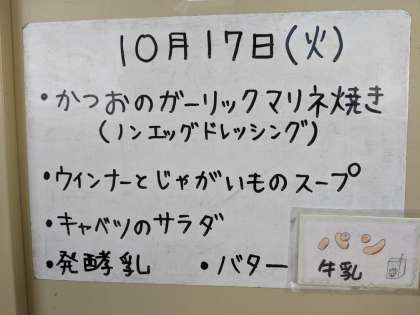 10月17日(火)
・かつおのガーリックマリネ焼き
(ノンエッグドレッシング)
・ウィンナーとじゃがいものスープ
・キャベツのサラダ
・発酵乳 ・バター
パン
牛乳